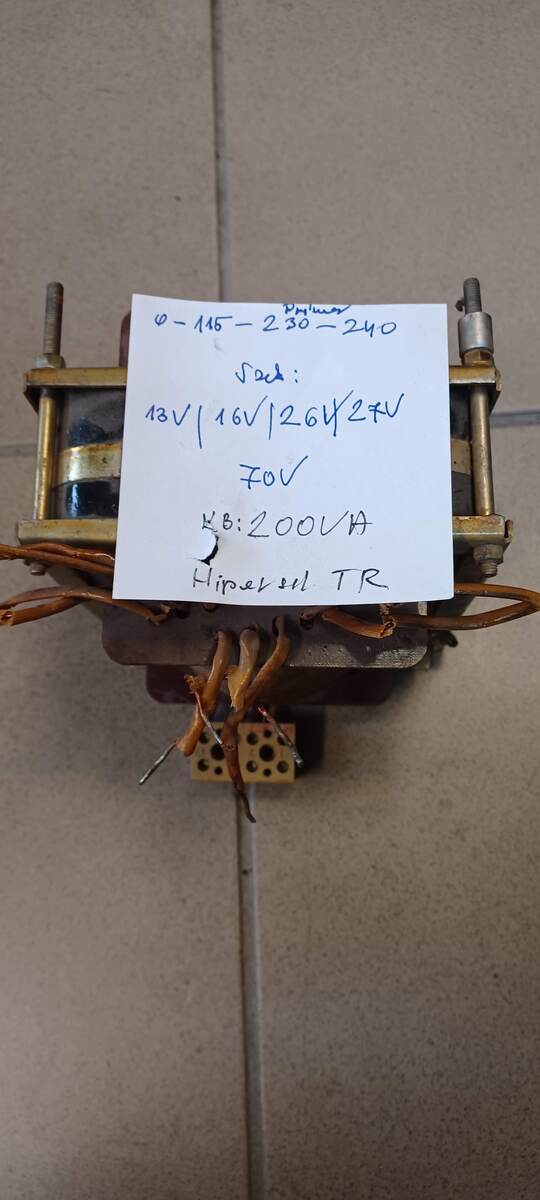 Primer
0-115-230-240
Szek:
13V/16V/26V/27V
70V
KB: 200VA
Hiperszil TR